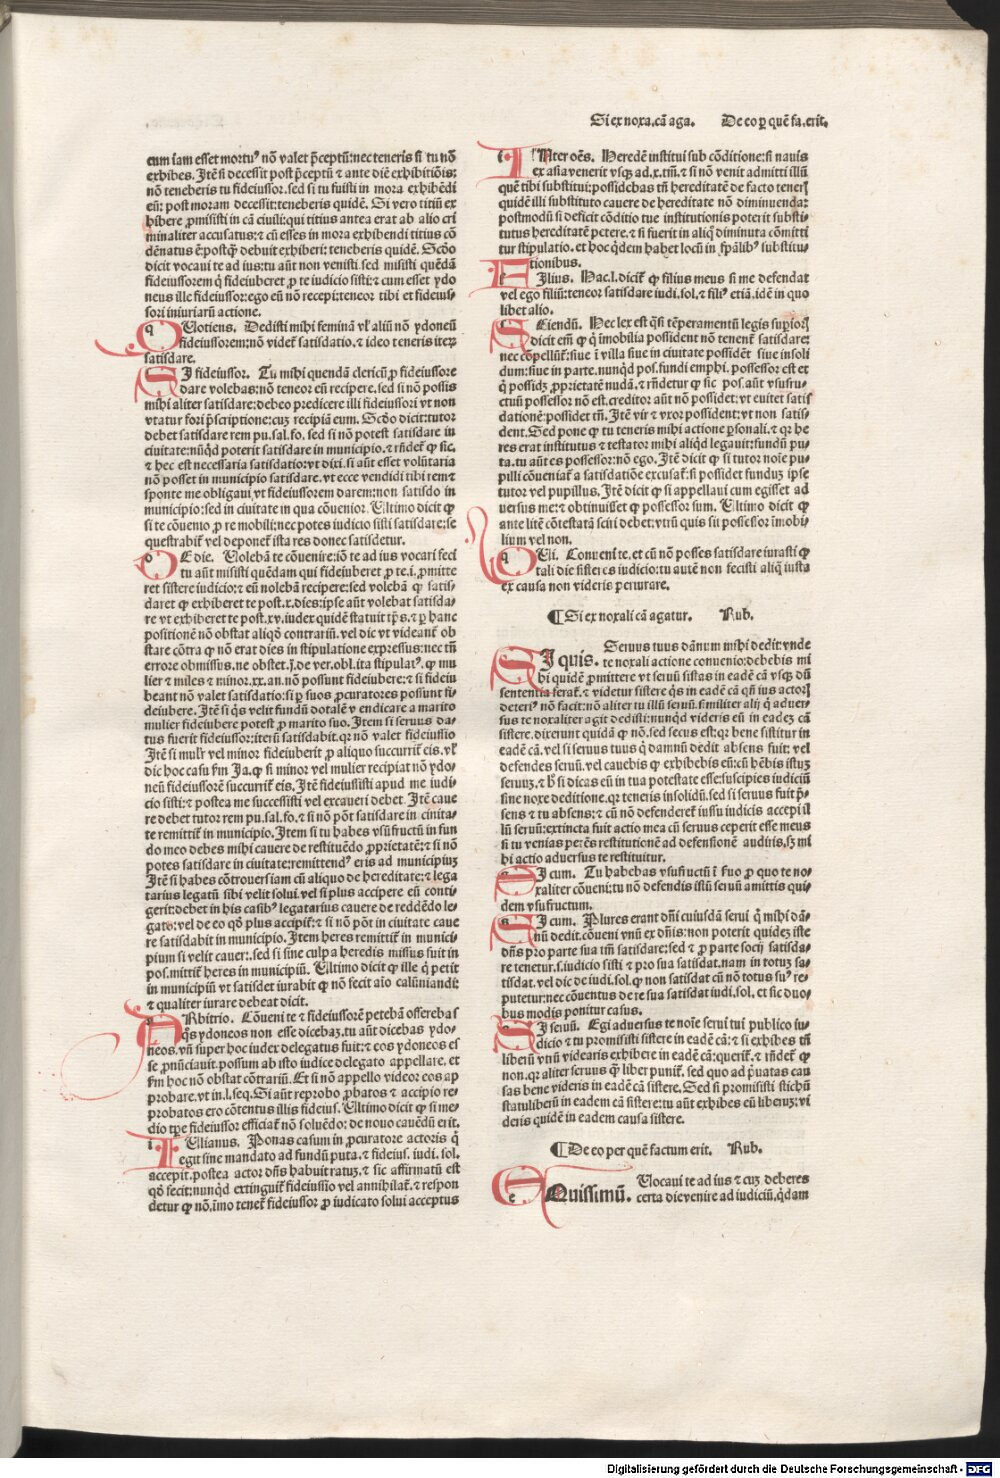 Si ex noxa.cã aga. De eo ꝑ quē fa.erit.
eum iam esset mortuꝰ nõ valet p̄ceptũ: nec teneris si tu nõ
exhibes. Itē si decessit post p̄ceptũ ⁊ ante diē exhibitiõis:
nõ teneberis tu fideiussor. sed si tu fuisti in mora exhibēdi
eũ: post moram decessit: teneberis quidē. Si vero titiũ ex
hibere ꝓmisisti in cã ciuili: qui titius antea erat ab alio cri
minaliter accusatus: ⁊ cũ esses in mora exhibendi titius cõ
dēnatus ē: postq̄ȝ debuit exhiberi: teneberis quidē. Scðo
dicit vocaui te ad ius: tu aũt non venisti. sed misisti quēdã
fideiussorem q̇ fideiuberet ꝓ te iudicio sisti: ⁊ cum esset ydo
neus ille fideiussor: ego eũ nõ recepi: teneor tibi et fideius⸗
sori iniuriarũ actione.
Uotiens. Dedisti mihi feminã vľ aliũ nõ ydoneũ
fideiussorem: nõ videt̃ satisdatio. ⁊ ideo teneris iteȝ
satisdare.
SI fideiussor. Tu mihi quendã clericũ ꝓ fideiussore
dare volebas: nõ teneor eũ recipere. sed si nõ possis
mihi aliter satisdare: debeo predicere illi fideiussori vt non
vtatur fori p̄scriptione: cuȝ recipiã eum. Scðo dicit: tutor
debet satisdare rem pu. sal. fo. sed si nõ potest satisdare in
ciuitate: nũqd poterit satisdare in municipio. ⁊ rñdet̃ ꝙ sic.
⁊ hec est necessaria satisdatio: vt dixi. si aũt esset volũtaria
nõ posset in municipio satisdare. vt ecce vendidi tibi rem ⁊
sponte me obligaui vt fideiussorem darem: non satisdo in
municipio: sed in ciuitate in qua cõuenior. Ultimo dicit ꝙ
si te cõuenio ꝓ re mobili: nec potes iudicio sisti satisdare: se
questrabit̃ vel deponet̃ ista res donec satisdetur.
DE die. Volebã te cõuenire: iõ te ad ius vocari feci
tu aũt misisti quēdam qui fideiuberet ꝓ te. i. ꝓmitte
ret sistere iudicio: ⁊ eũ nolebã recipere: sed volebã ꝙ satis⸗
daret ꝙ exhiberet te post. x. dies: ipse aũt volebat satisda⸗
re vt exhiberet te post. xv. iudex quidē statuit tp̄s. ⁊ ꝑ hanc
positionē nõ obstat aliqð contrariũ. vel dic vt videant̃ ob
stare cõtra ꝙ nõ erat dies in stipulatione expressus: nec tm̃
errore obmissus. ne obstet. j. de ver. obl. ita stipulatꝰ. ꝙ mu
lier ⁊ miles ⁊ minor. xx. an. nõ possunt fideiubere: ⁊ si fideiu
beant nõ valet satisdatio: si ꝑ suos ꝓcuratores possunt fi⸗
deiubere. Itē si q̇s velit fundũ dotalē vendicare a marito
mulier fideiubere potest ꝓ marito suo. Item si seruus da⸗
tus fuerit fideiussor: iterũ satisdabit. qr nõ valet fideiussio
Itē si muľr vel minor fideiuberit ꝓ aliquo succurrit̃ eis. vľ
dic hoc casu ẜm Ja. ꝙ si minor vel mulier recipiat nõ ydo⸗
neũ fideiussorē succurrit̃ eis. Itē fideiussisti apud me iudi⸗
cio sisti: ⁊ postea me successisti vel excaueri debet. Itē caue
re debet tutor rem pu. sal. fo. ⁊ si nõ põt satisdare in ciuita⸗
te remittit̃ in municipio. Item si tu habes vsũfructũ in fun
do meo debes mihi cauere de restituēdo ꝓprietatē: ⁊ si nõ
potes satisdare in ciuitate: remittendꝰ eris ad municipiuȝ
Itē si habes cõtrouersiam cũ aliquo de hereditate: ⁊ lega
tarius legatũ sibi velit solui. vel si plus accipere eũ conti⸗
gerit: debet in his casibꝰ legatarius cauere de reddēdo le⸗
gato: vel de eo qð plus accipit̃: ⁊ si nõ põt in ciuitate caue
re satisdabit in municipio. Item heres remittit̃ in munici⸗
pium si velit cauer:. sed si sine culpa heredis missus fuit in
pos. mittit̃ heres in municipiũ. Ultimo dicit ꝙ ille q̇ petit
in municipiũ vt satisdet iurabit ꝙ nõ fecit aio calũniandi:
⁊ qualiter iurare debeat dicit.
ARbitrio. Cõueni te ⁊ fideiussorē petebã offerebas
q̇s ydoneos non esse dicebaȝ. tu aũt dicebas ydo⸗
neos. vñ super hoc iudex delegatus fuit: ⁊ eos ydoneos es
se ꝓnũciauit. possum ab isto iudice delegato appellare. et
ẜm hoc nõ obstat cõtrariũ. Et si nõ appello videor eos ap
probare. vt in. l. seq. Si aũt reprobo ꝓbatos ⁊ accipio re⸗
probatos ero cõtentus illis fideius. Ultimo dicit ꝙ si me⸗
dio tp̄e fideiussor efficiat̃ nõ soluēdo: de nouo cauēdũ erit.
IUlianus. Ponas casum in ꝓcuratore actoris q̇
egit sine mandato ad fundũ puta. ⁊ fideius. iudi. sol.
accepit. postea actor dñs habuit ratuȝ. ⁊ sic affirmatũ est
qð fecit: nunqd extinguit̃ fideiussio vel annihilat̃. ⁊ respon
detur ꝙ nõ. imo tenet̃ fideiussor ꝓ iudicato solui acceptus
INter oēs. Heredē institui sub cõditione: si nauis
ex asia venerit vsqȝ ad. x. tm̃. ⁊ si nõ venit admitti illũ
quē tibi substitui: possidebas tm̃ hereditatē de facto teneris
quidē illi substituto cauere de hereditate nõ diminuenda:
postmodũ si deficit cõditio tue institutionis poterit substi⸗
tutus hereditatē petere. ⁊ si fuerit in aliq̇ diminuta cõmitti
tur stipulatio. et hoc q̇dem habet locũ in sp̄alibꝰ substitu⸗
tionibus.
FIlius. Hac. l. dicit̃ ꝙ filius meus si me defendat
vel ego filiũ: teneor satisdare iudi. sol. ⁊ filiꝰ etiã. idē in quo
libet alio.
SCiendũ. Hec lex est q̇si tēperamentũ legis superioris
dicit eñ ꝙ q̇ imobilia possident nõ tenent̃ satisdare:
nec cõpellunt̃: siue ī villa siue in ciuitate possidēt siue insoli
dum: siue in parte. nunqd pos. fundi emphi. possessor est et
q̇ possidȝ ꝓprietatē nudã. ⁊ rñdetur ꝙ sic pos. aũt vsufru⸗
ctuũ possessor nõ est. creditor aũt nõ possidet: vt euitet satis
datione: possidet tm̃. Itē vir ⁊ vxor possident: vt non satis⸗
dent. Sed pone ꝙ tu teneris mihi actione ꝑsonali. ⁊ qr he
res erat institutus ⁊ testator mihi aliqd legauit: fundũ pu⸗
ta. tu aũt es possessor: nõ ego. Itē dicit ꝙ si tutor noīe pu⸗
pilli cõueniat̃ a satisdatiõe excusat̃: si possidet funduȝ ipse
tutor vel pupillus. Itē dicit ꝙ si appellaui cum egisset ad
uersus me: ⁊ obtinuisset ꝙ possessor sum. Ultimo dicit ꝙ
ante litē cõtestatã sciri debet: vtrũ quis sit possessor īmobi⸗
lium vel non.
QUi. Conueni te. et cũ nõ posses satisdare iurasti ꝙ
tali die sisteres iudicio: tu autē non fecisti aliq̇ iusta
ex causa non videris periurare.
¶ Si ex noxali cã agatur. Rub.
SI quis. Seruus tuus dãnum mihi dedit: vnde
te noxali actione conuenio: debebis mi
hi quidē ꝓmittere vt seruũ sistas in eadē cã vsqȝ dũ
sententia ferat̃. ⁊ videtur sistere q̇s in eadē cã qñ ius actoris
deteriꝰ nõ facit: nõ aliter tu illũ seruũ. similiter alij q̇ aduer⸗
sus te noxaliter agit dedisti: nunqd videris eũ in eadeȝ cã
sistere. dixerunt quidã ꝙ nõ. sed secus est: qr bene sistitur in
eadē cã. vel si seruus tuus q̇ damnũ dedit absens fuit: vel
defendes seruũ. vel cauebis ꝙ exhibebis eũ: cũ hēbis istuȝ
seruuȝ. ⁊ hľ si dicas eũ in tua potestate esse: suscipies iudiciũ
sine noxe deditione. qr teneris insolidũ. sed si seruus fuit p̄⸗
sens ⁊ tu absens: ⁊ cũ nõ defenderet̃ iussu iudicis accepi il
lũ seruũ: extincta fuit actio mea cũ seruus ceperit esse meus
si tu venias per: ēs restitutionē ad defensionē audiris. sȝ mi
hi actio aduersus te restituitur.
SI cum. Tu habebas vsufructũ ī ẜuo ꝓ quo te no⸗
xaliter cõueni: tu nõ defendis istũ seruũ amittis qui⸗
dem vsufructum.
SI cum. Plures erant dñi cuiusdã serui q̇ mihi dã⸗
nũ dedit. cõueni vnũ ex dñis: non poterit quideȝ iste
dñs ꝓ parte sua tm̃ satisdare: sed ⁊ ꝓ parte socij satisda⸗
re tenetur. s. iudicio sisti ⁊ pro sua satisdat. nam in totuȝ sa⸗
tisdat. vel dic de iudi. sol. ꝙ non satisdat cũ nõ totus suꝰ re⸗
putetur: nec cõuentus de re sua satisdat iudi. sol. et sic duo⸗
bus modis ponitur casus.
SI seruũ. Egi aduersus te noīe serui tui publico iu⸗
dicio ⁊ tu promisisti sistere in eadē cã: ⁊ si exhibes tm̃
liberũ vnũ videaris exhibere in eadē cã: querit̃. ⁊ rñdet̃ ꝙ
non. qr aliter seruus q̇ liber punit̃. sed quo ad p̄uatas cau
sas bene videris in eadē cã sistere. Sed si promisisti stichũ
statuliberũ in eadem cã sistere: tu aũt exhibes eũ liberuȝ: vi
deris quidē in eadem causa sistere.
¶ De eo per quē factum erit. Rub.
EQuissimũ. Vocaui te ad ius ⁊ cuȝ deberes
certa die venire ad iudiciũ. q̇dam
Digitalisierung gefördert durch die Deutsche Forschungsgemeinschaft - DFG